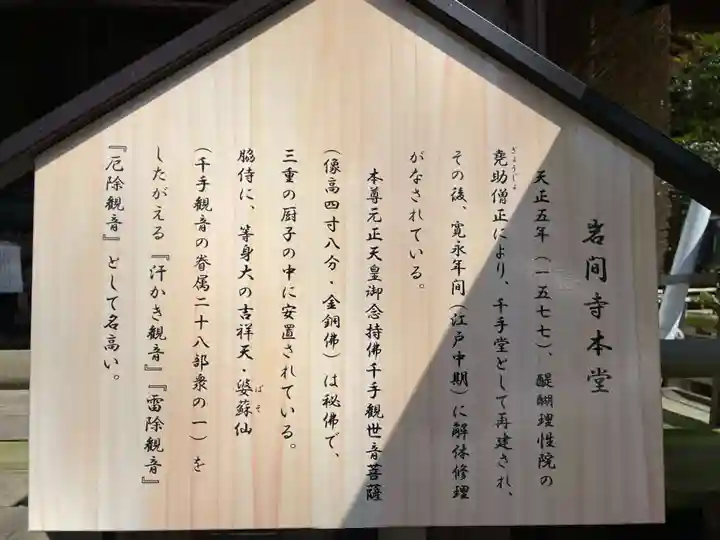 岩間寺本堂
天正五年（一五七七）、醍醐理性院の
尭助僧正により、千手堂として再建され、
ぎょうじょ
その後、寛永年間（江戸中期）に解体修理
がなされている。
本尊元正天皇御念持佛千手観世音菩薩
（像高四寸八分・金銅佛）は秘佛で、
三重の厨子の中に安置されている。
脇侍に、等身大の吉祥天・婆蘇仙
ばそ
（千手観音の眷属二十八部衆の一）を
したがえる『汗かき観音』『雷除観音』
『厄除観音』として名高い。